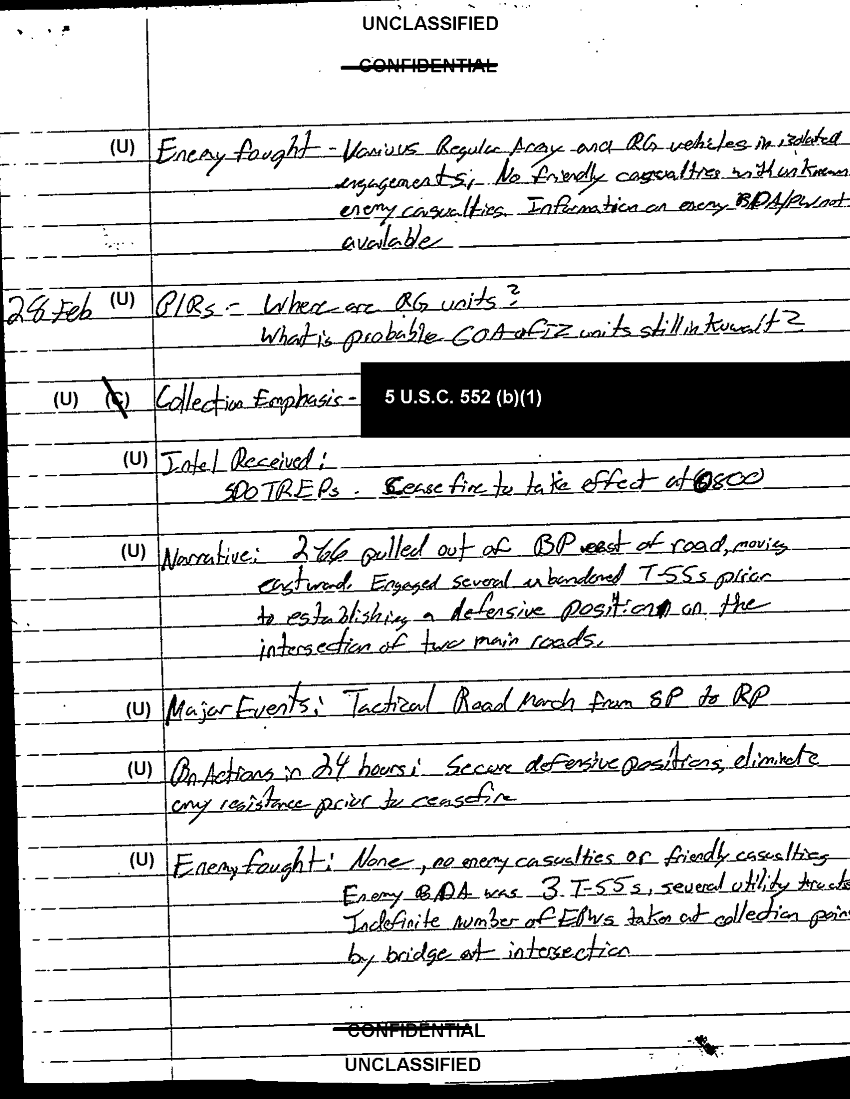 UNCLASSIFIED
CONFIDENTIAL
(U) Enemy fought - Various Regular Army and RG vehicles in isolated
engagements; No friendly casualties with unknown
enemy casualties. Information on enemy BDA/PW not
available
28 Feb (U) PIRs - Where are RG units?
What is probable COA of IZ units still in Kuwait?
(U) (C) Collection Emphasis - 5 U.S.C. 552 (b)(1)
(U) Intel Received:
SPOTREPs. Cease fire to take effect at 0800
(U) Narrative: 2-66 pulled out of BP east of road, moving
eastward. Engaged several abandoned T-55s prior
to establishing a defensive position on the
intersection of two main roads.
(U) Major Events: Tactical Road March from SP to RP
(U) Bn Actions in 24 hours: Secure defensive positions, eliminate
any resistance prior to ceasefire
(U) Enemy fought: None, no enemy casualties or friendly casualties
Enemy BDA was 3 T-55s, several utility trucks
Indefinite number of EPWs taken at collection poin
by bridge at intersection
CONFIDENTIAL
UNCLASSIFIED